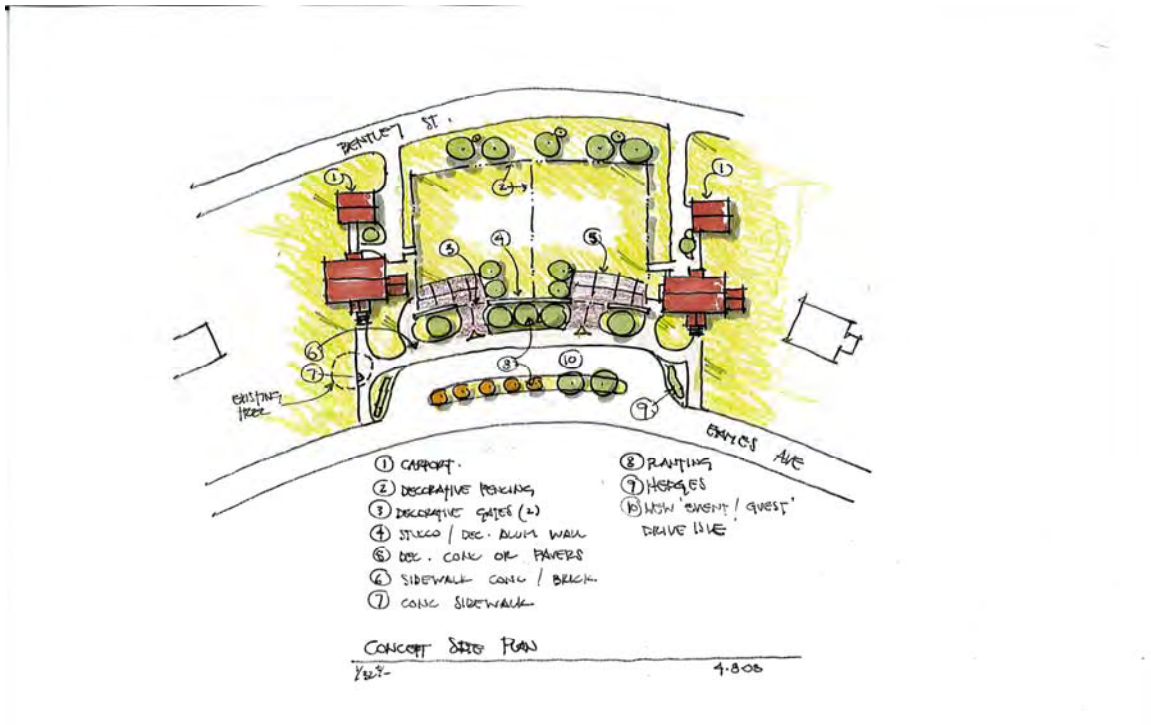 BENTLEY ST.
① ①
②
③ ④ ⑤
⑥
⑦ ⑧ ⑩
⑨
EXISTING
TREE
AVE
① CARPORT.
② DECORATIVE FENCING
③ DECORATIVE GATES (2)
④ STUCCO / DEC. ALUM WALL
⑤ DEC. CONC OR PAVERS
⑥ SIDEWALK CONC / BRICK.
⑦ CONC SIDEWALK
⑧ PLANTING
⑨ HEDGES
⑩ NEW 'EVENT / GUEST'
DRIVE ISLE
CONCEPT SITE PLAN
4.8.08